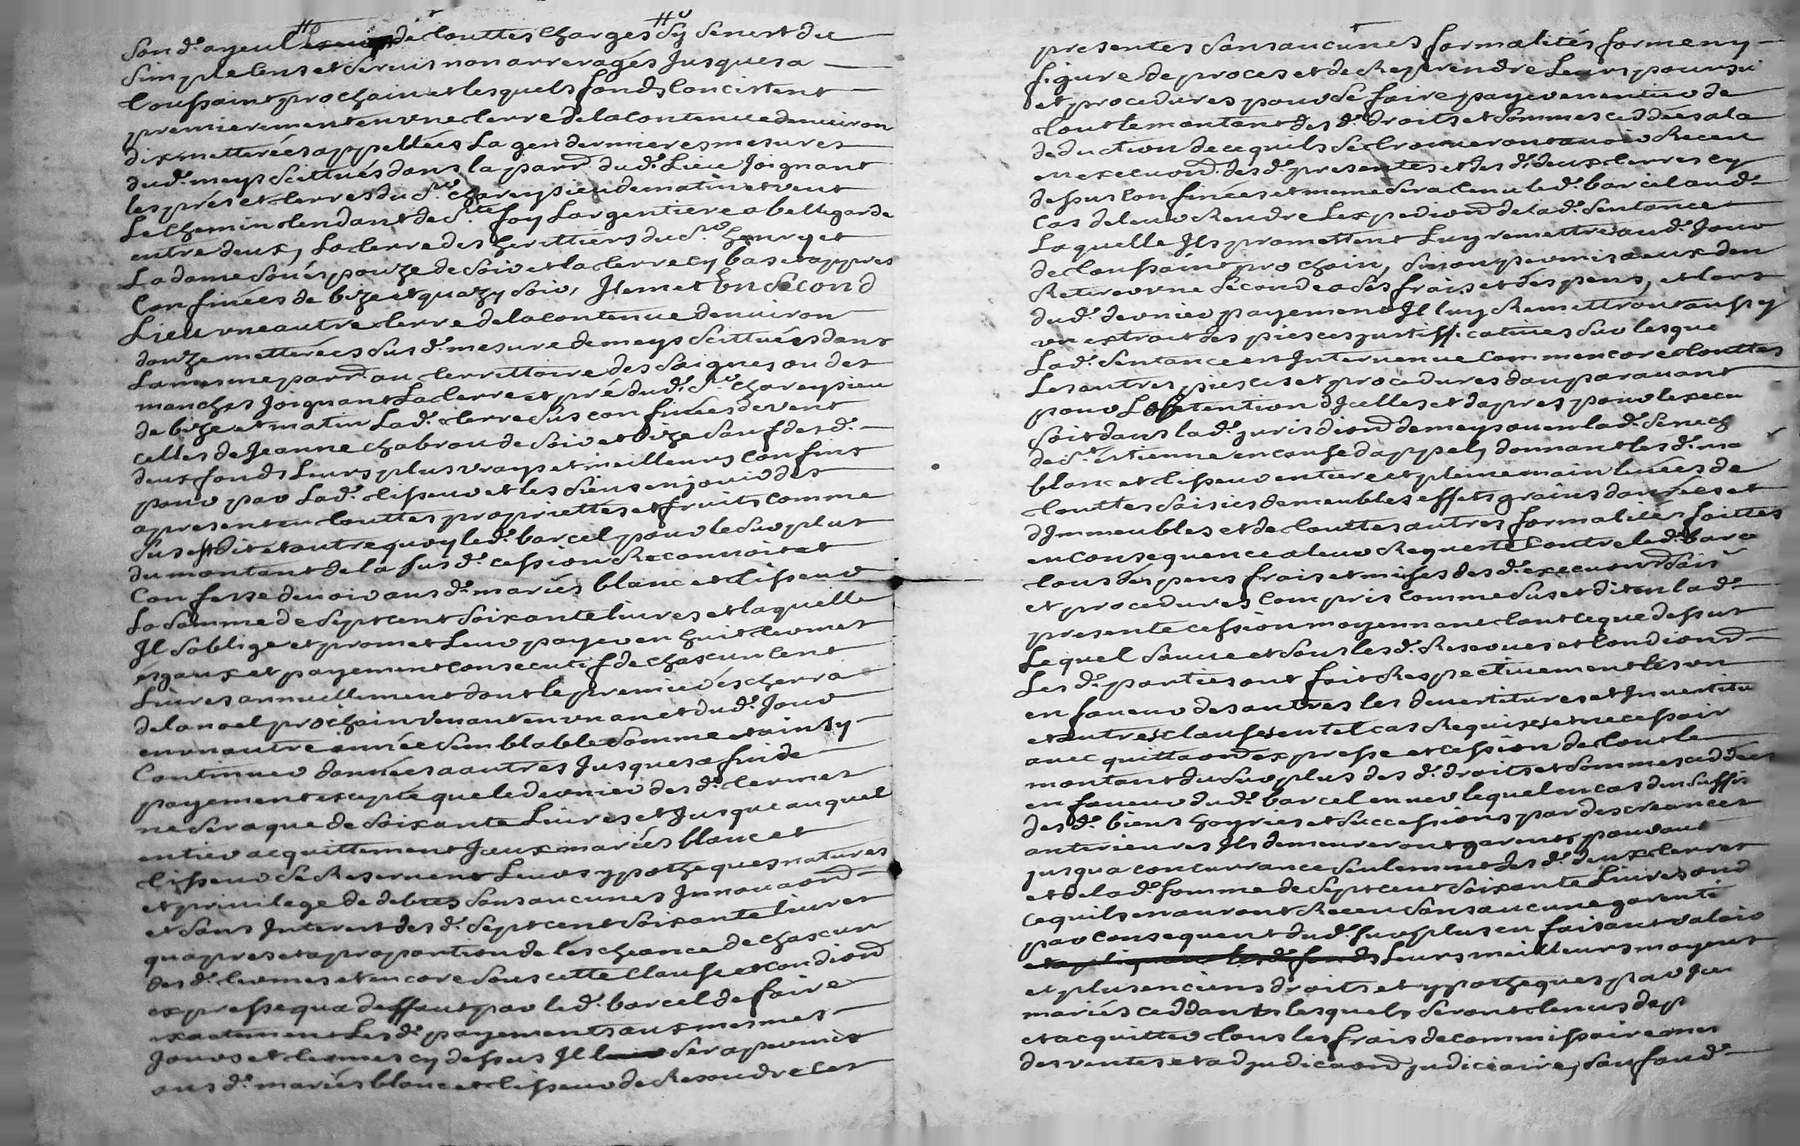 son d. ayeul de touttes charges Sy Senest du
Simple Cens et Servis non arreragés Jusques a
toussaint prochain et lesquels fonds Concistent
premierement en une terre de la contenue denuiron
dix metterées appellées La gen dernieres mesures
dud. meys Scittués dans la parr. dud. Lieu Joignant
les prés et terres du Sr. chareysieu de matin et vent
Le chemin tendant de Ste foy Largentiere a bellegarde
entre deux, La terre des herittiers du Sr. henry et
La dame Soir et la terre cy bas et appres
Confinées de bize et quazy soir, Jtem et En Second
Lieu une autre terre de la contenue denuiron
douze metterées Sus d. mesure de meys Scittuées dans
La mesme parr. au territtoire des Saignes ou des
manches Joignant La terre et pré dud. Sr. chareysieu
de bize et matin La d. terre Sus confinées de vent
celles de Jeanne chabrou de Soir et bize Sauf des d.
deux fonds Leurs plus vrays et meilleurs confins
pour par Lad. tisseur et les Siens en jouir des
apresent en touttes propriettes et fruits comme
Sus est dit et autre quoy led. barcel pour le Surplus
du montant de la Sus d. cession Reconnoit et
Confesse devoir aus d. mariés blanc et tisseur
La Somme de Sept cent Soixante liures et laquelle
Jl Soblige et promet Leur payer en huit termes
esgaux et payement consecutif de chascun cent
Liures annuellement dont le premier escherra
de la noel prochain venant en un an et dud. Jour
en un autre année Semblable Somme et ainsy
Continuer dannées a autres Jusques a fin de
payement excepté que le dernier des d. termes
ne Sera que de Soixante Liures et Jusque au quel
entier acquittement Jceux mariés blanc et
tisseur Se Reservent Leurs ypotheques natures
et priuilege de debtes Sans aucunes Jnnouaon
et Sans Jnterest des d. Sept cent Soixante liures
quapres et a proportion de lescheance de chascun
des d. termes et encore Sous cette clause et condion
expresse qua deffaut par led. barcel de faire
exactement Les d. payements aux mesmes
Jours et termes cy dessus Jl Sera permis
aus d. mariés blanc et tisseur de Resoudre les
presentes Sans aucunes formalités forme ny
figure de proces et de Reprendre Leurs poursui
et procedures pour Se faire payer en entier de
tout le montant des d. droits et Sommes ceddées a la
deduction de ce quils Se trouueront auoir Receu
en execuon des d. presentes et des d. deux terres cy
dessus confinées et meme Sera tenu led. barcel aud.
Cas de leur Rendre Lexpedion de la d. Sentance
Laquelle Jls promettent Luy remettre aud. Jour
de toussaint prochain, Sinon permis a eux den
Retirer une Seconde a Ses frais et despens, et lors
dud. dernier payement Jl luy Remettront aussy
un extrait des piesces justifficatiues Sur lesque
La d. Sentance est Jnteruenue comme encore touttes
Les autres piesces et procedures dauparauant
pour Lobtention dJcelles et dapres pour lexecu
Soit dans la d. jurisdion de meys ou en la d. Senech
de St. Estienne en cause dappel, donnant les d. ma
blanc et tisseur entiere et pleine main leuées de
touttes Saisies de meubles effets grains danrées et
dJmmeubles et de touttes autres formalités faittes
en Consequence a leur Requeste Contre led. barce
tous despens frais et mises des d. execuons
et procedures Compris comme Sus est dit en la d.
presente cession moyennant tout ce que dessus
Lequel Sauue et Sous les d. Reserues et Condions
Les d. parties ont fait Respectiuement les vn
en faueur des autres les deuestitures et Jnuestitu
et autres clauses en tel cas Requises et necessair
auec quittaon expresse et cession de tout le
montant du Surplus des d. droits et Sommes ceddées
en faueur dud. barcel enuer lequel en cas din Suffis
des d. biens hoyries et Successions par des creances
anterieures Jls demeureront garents pour aut
jusqua concurrance Seulement des d. deux terres
et de la d. Somme de Sept cent Soixante Liures ou d
ce quils en auront Receu Sans aucune garentie
par consequent dud. Surplus en faisant valoir
Leurs meilleurs moyens
et plus enciens droits et ypotheques par Jce
mariés ceddants lesquels Seront tenus de p
et acquitter tous les frais de commissaire mes
des ventes et adjudicaon judiciaire, Sauf aud.